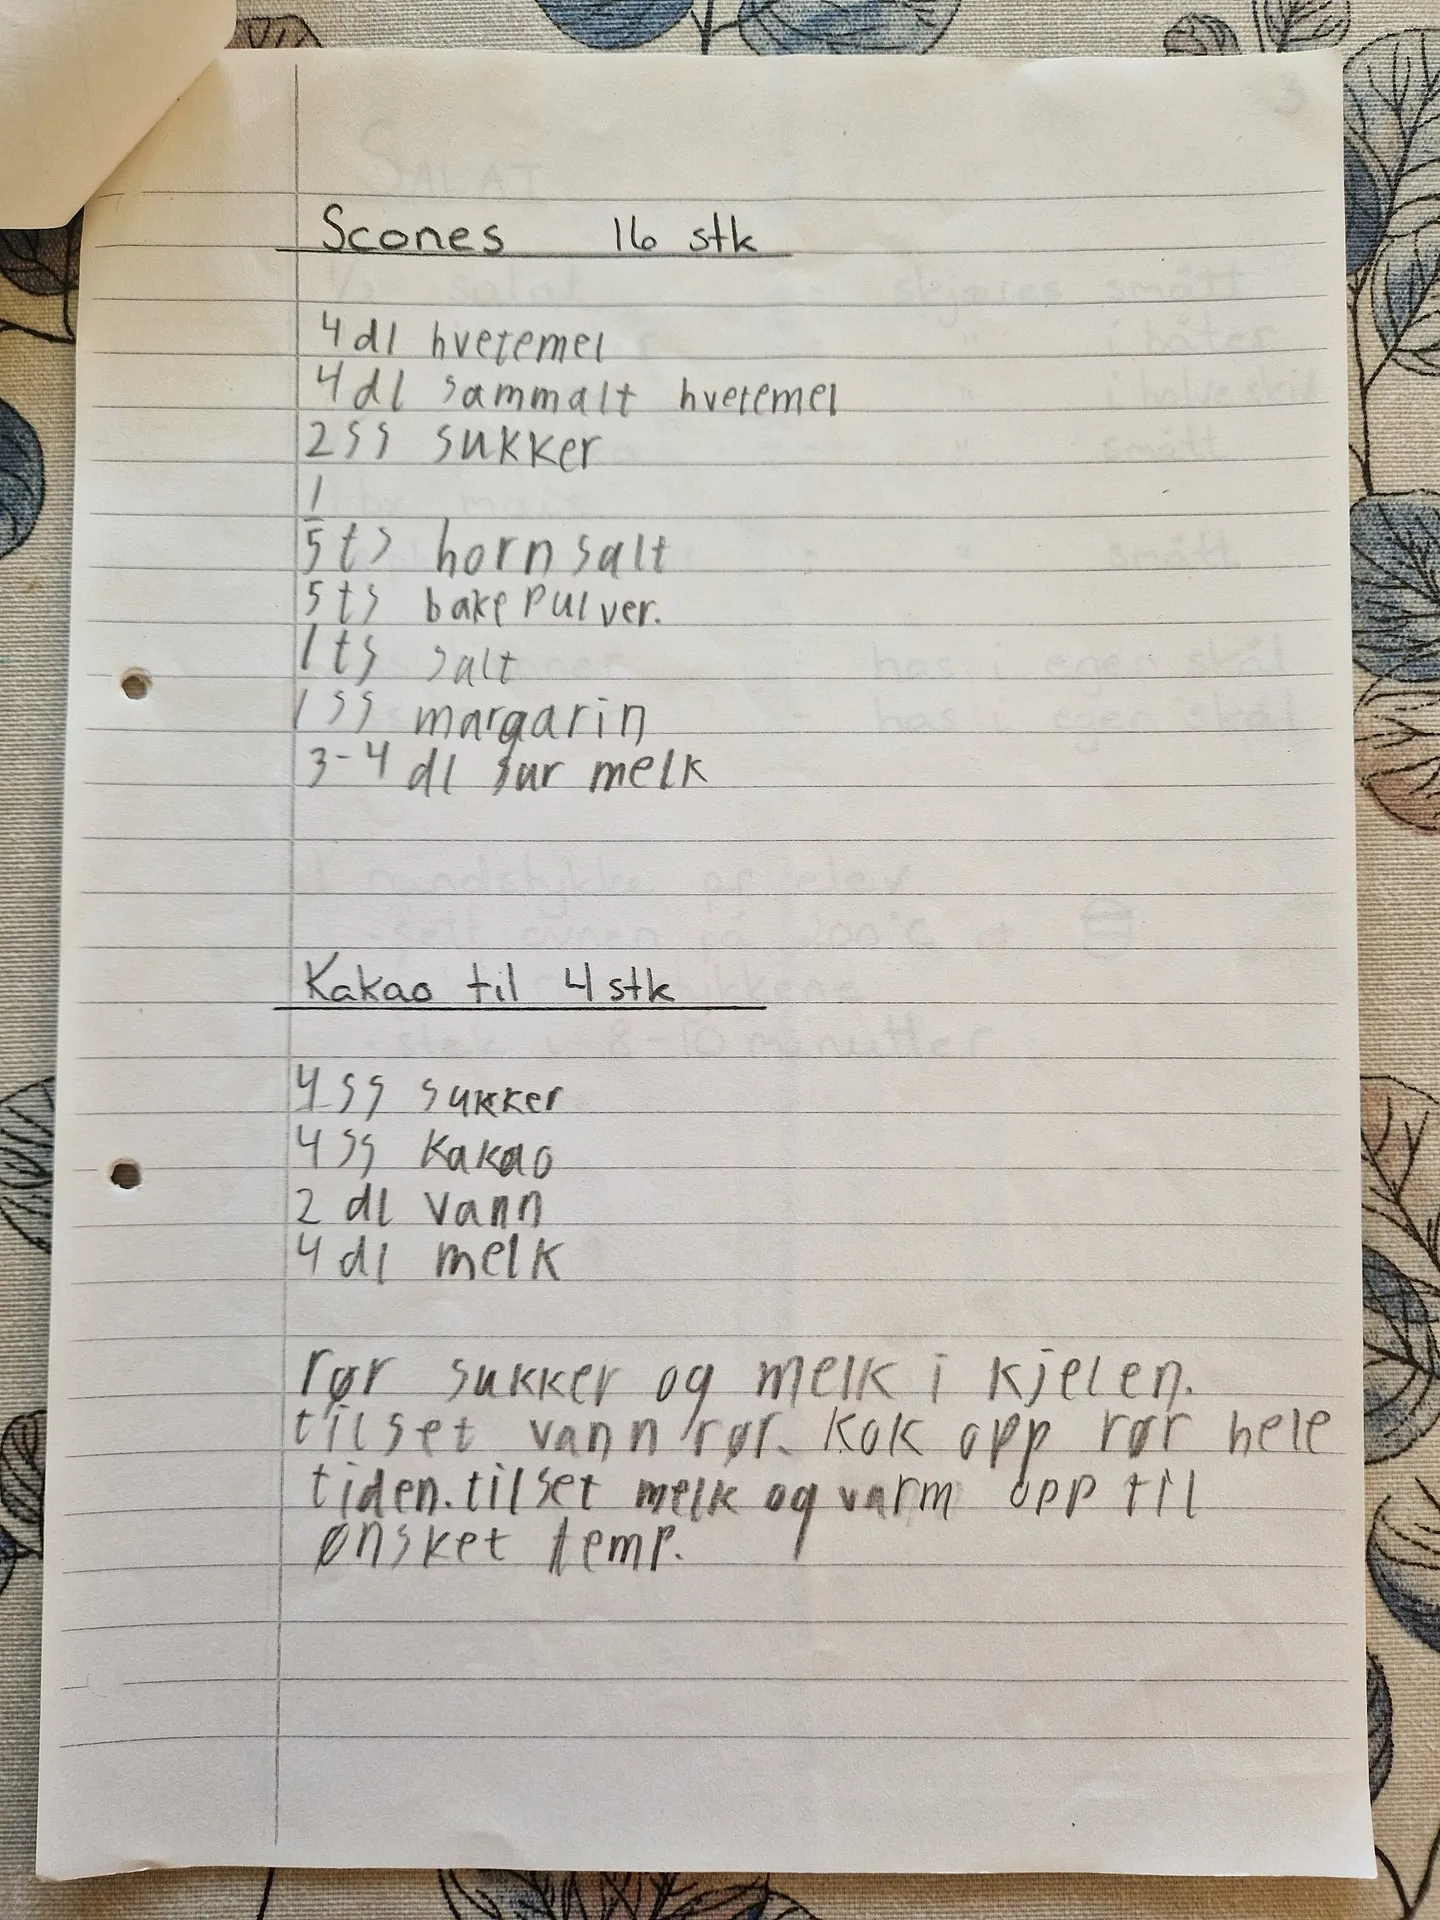 Scones 16 stk
4 dl hvetemel
4 dl sammalt hvetemel
2 ss sukker
1/5 ts hornsalt
5 ts bakepulver.
1 ts salt
1 ss margarin
3-4 dl sur melk
Kakao til 4 stk
4 ss sukker
4 ss Kakao
2 dl vann
4 dl melk
rør sukker og melk i kjelen.
tilset vann rør. Kok opp rør hele
tiden. tilset melk og varm opp til
ønsket temp.